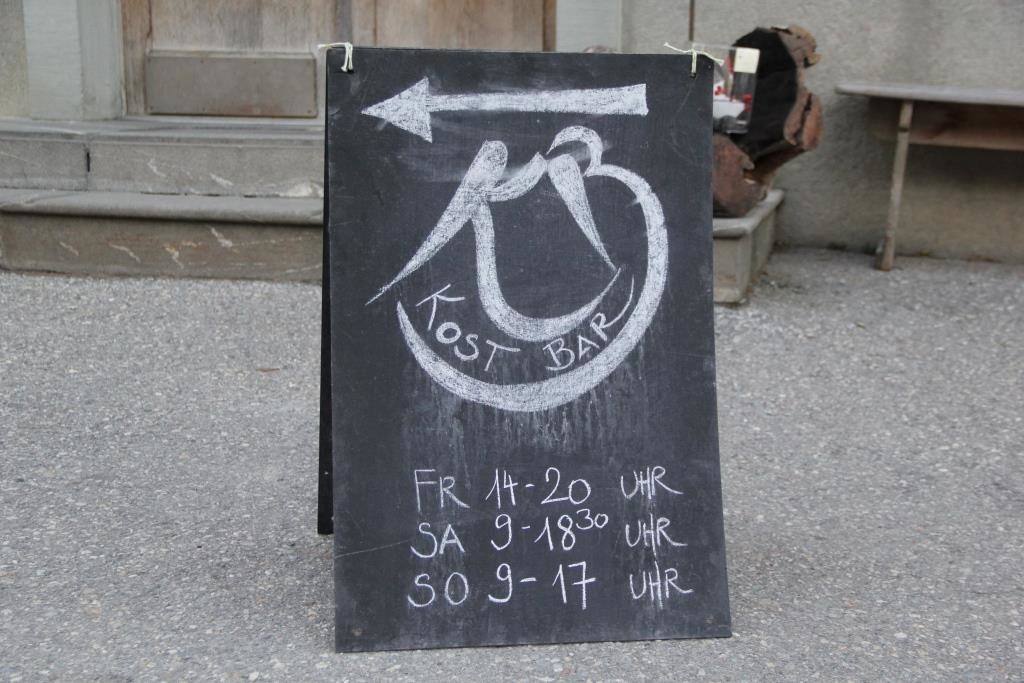 KB
KOST BAR
FR 14-20 UHR
SA 9-18³⁰ UHR
SO 9-17 UHR